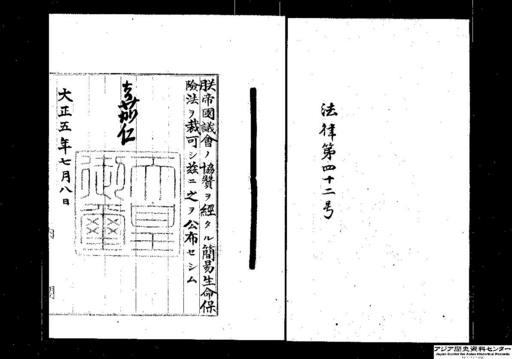 法律第四十二号
朕帝國議會ノ協贊ヲ經タル簡易生命保
險法ヲ裁可シ茲ニ之ヲ公布セシム
嘉仁
天皇
御璽
大正五年七月八日
内閣
アジア歴史資料センター
Japan Center for Asian Historical Records